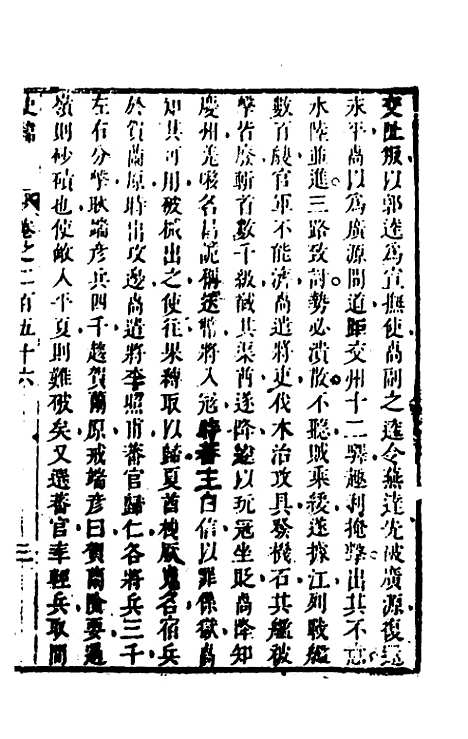 交阯叛以郭逵為宣撫使卨副之逵令燕達先破廣源復還
永平卨以為廣源間道距交州十二驛趣利掩擊出其不意
水陸並進三路致討勢必潰散不聽賊乘緩遂據江列戰艦
數百艘官軍不能濟卨遣將吏伐木治攻具發機石其艦被
擊皆廢斬首數千級馘其渠酋遂降逵以玩寇坐貶卨降知
慶州羌唆名昌詭稱送幣將入寇時蕃主白信以罪係獄卨
知其可用破械出之使往果縛取以歸夏酋梭厥嵬名宿兵
於賀蘭原時出攻邊卨遣將李照甫蕃官歸仁各將兵三千
左右分擊耿端彥兵四千趨賀蘭原戒端彥曰賀蘭險要過
嶺則砂磧也使敵人平夏則難破矣又選蕃官李輕兵取間
史編 卷之二百五十六 三